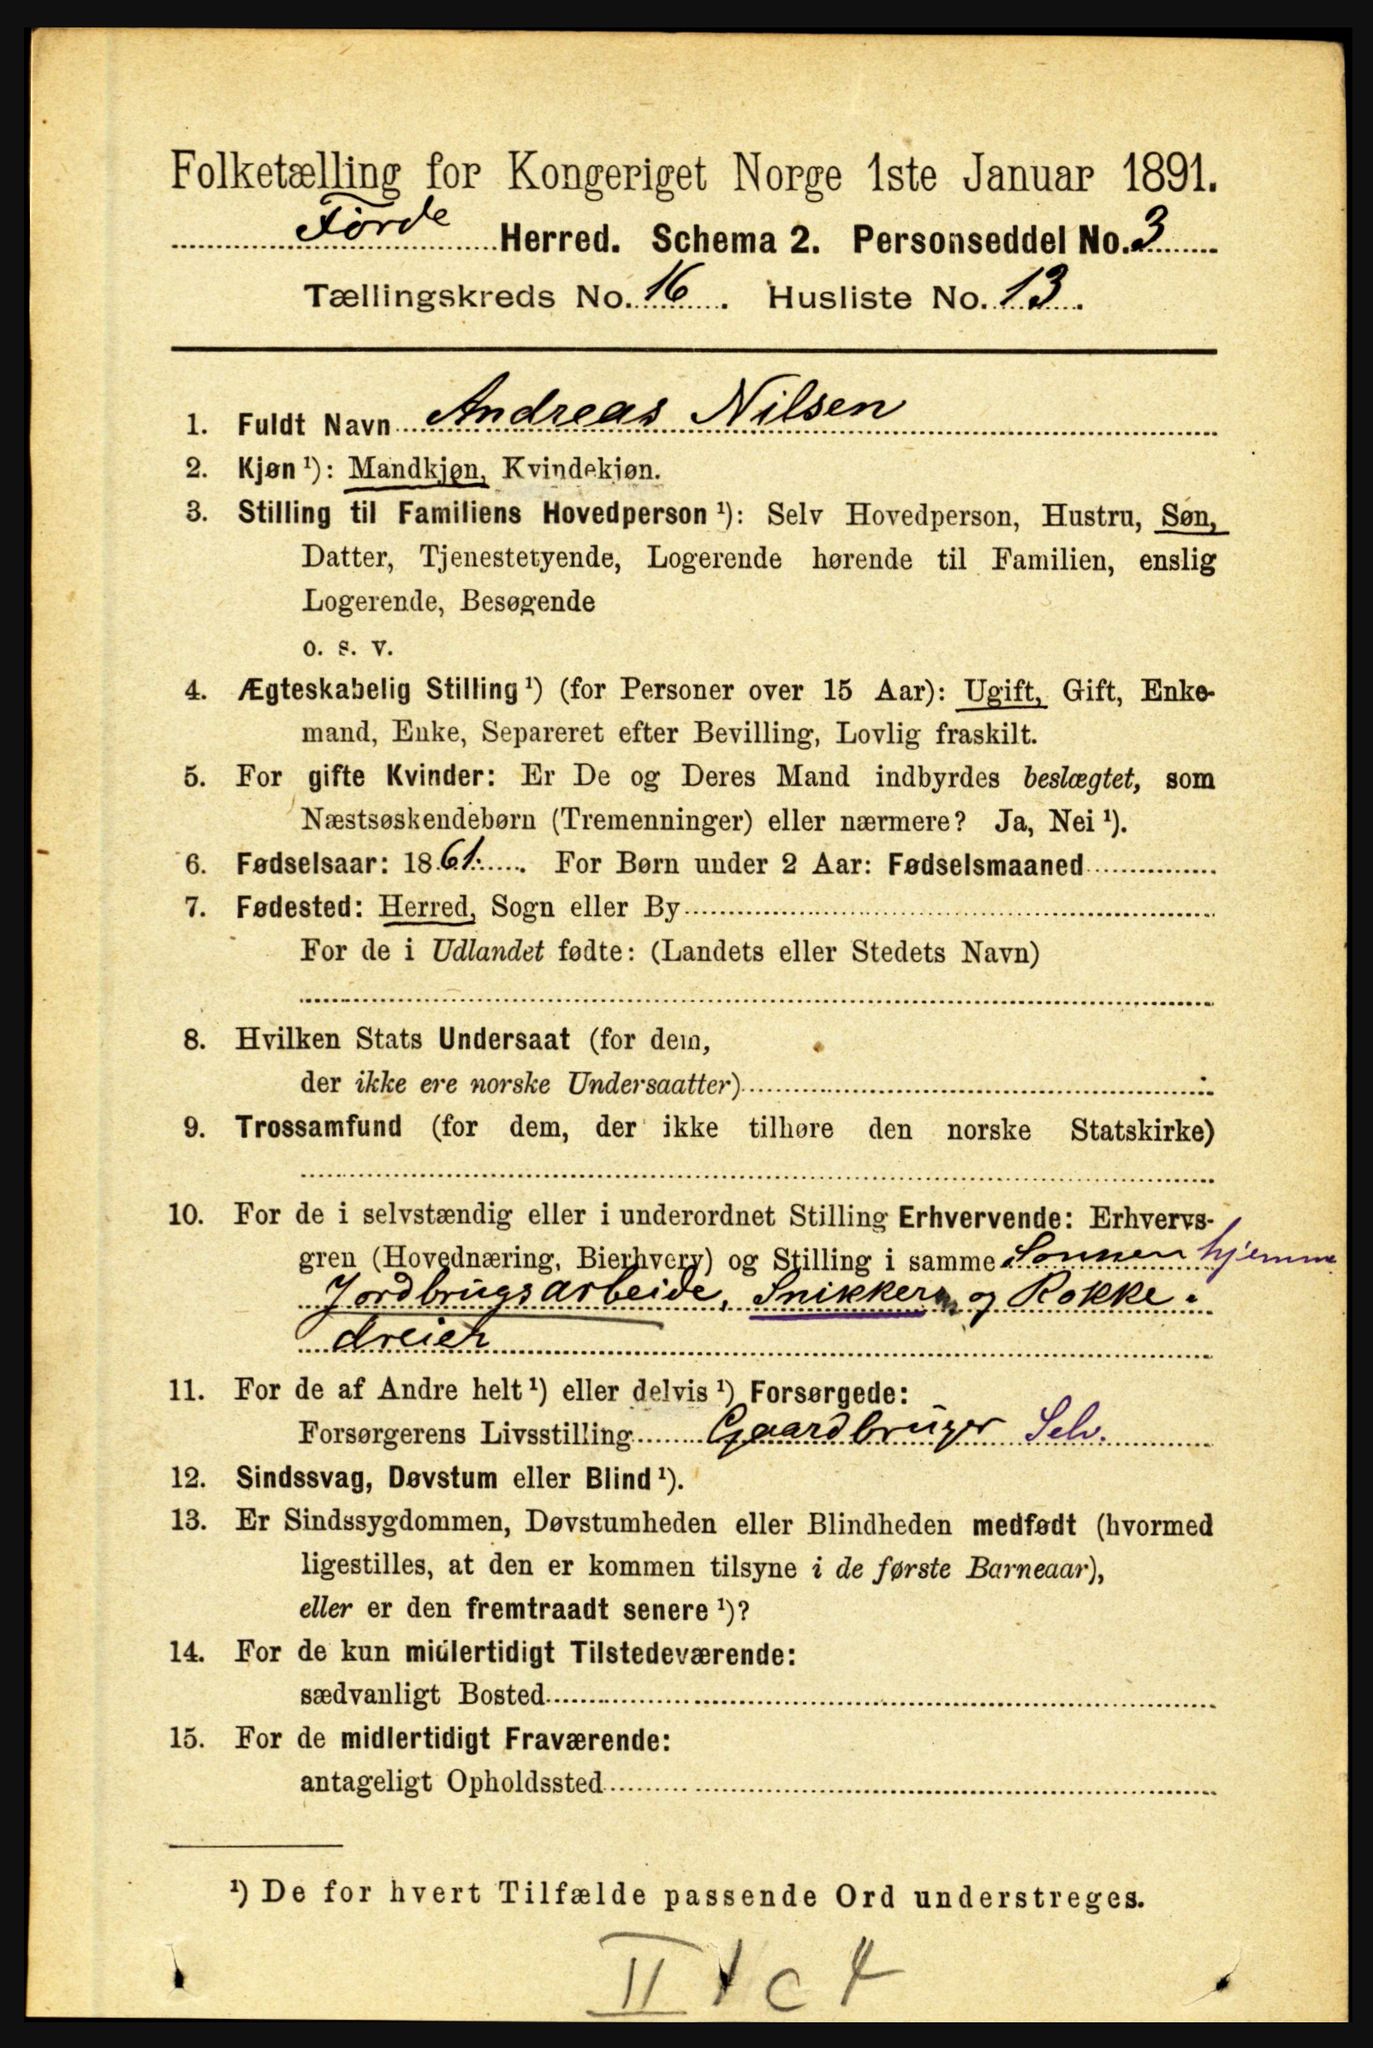 Folketælling for Kongeriget Norge 1ste Januar 1891.
Førde Herred. Schema 2. Personseddel No. 3
Tællingskreds No. 16. Husliste No. 13.
1. Fuldt Navn Andreas Nilsen
2. Kjøn ¹): Mandkjøn, Kvindekjøn.
3. Stilling til Familiens Hovedperson ¹): Selv Hovedperson, Hustru, Søn,
Datter, Tjenestetyende, Logerende hørende til Familien, enslig
Logerende, Besøgende
o. s. v.
4. Ægteskabelig Stilling ¹) (for Personer over 15 Aar): Ugift, Gift, Enke-
mand, Enke, Separeret efter Bevilling, Lovlig fraskilt.
5. For gifte Kvinder: Er De og Deres Mand indbyrdes beslægtet, som
Næstsøskendebørn (Tremenninger) eller nærmere? Ja, Nei ¹).
6. Fødselsaar: 1861. For Børn under 2 Aar: Fødselsmaaned
7. Fødested: Herred, Sogn eller By
For de i Udlandet fødte: (Landets eller Stedets Navn)
8. Hvilken Stats Undersaat (for dem,
der ikke ere norske Undersaatter)
9. Trossamfund (for dem, der ikke tilhøre den norske Statskirke)
10. For de i selvstændig eller i underordnet Stilling Erhvervende: Erhvervs-
gren (Hovednæring, Bierhverv) og Stilling i samme Sønnen hjemme
Jordbrugsarbeide, Snikker og Rokke-
dreier
11. For de af Andre helt ¹) eller delvis ¹) Forsørgede:
Forsørgerens Livsstilling Gaardbruger Selv.
12. Sindssvag, Døvstum eller Blind ¹).
13. Er Sindssygdommen, Døvstumheden eller Blindheden medfødt (hvormed
ligestilles, at den er kommen tilsyne i de første Barneaar),
eller er den fremtraadt senere ¹)?
14. For de kun midlertidigt Tilstedeværende:
sædvanligt Bosted
15. For de midlertidigt Fraværende:
antageligt Opholdssted
¹) De for hvert Tilfælde passende Ord understreges.
II 1 c 4